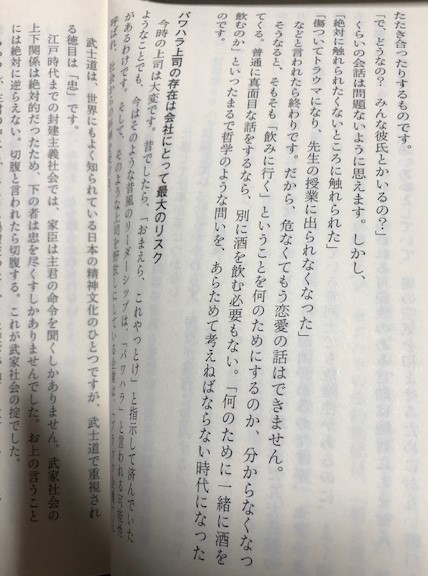 ただき合ったりするものです。
「で、どうなの? みんな彼氏とかいるの?」
くらいの会話は問題ないように思えます。しかし、
「絶対に触れられたくないところに触れられた」
「傷ついてトラウマになり、先生の授業に出られなくなった」
などと言われたら終わりです。だから、危なくてもう恋愛の話はできません。
そうなると、そもそも「飲みに行く」ということを何のためにするのか、分からなくなっ
てくる。普通に真面目な話をするなら、別に酒を飲む必要もない。「何のために一緒に酒を
飲むのか」といったまるで哲学のような問いを、あらためて考えねばならない時代になった
のです。
パワハラ上司の存在は会社にとって最大のリスク
今時の上司は大変です。昔でしたら、「おまえら、これやっとけ」と指示して済んでいた
ようなことでも、今はそのような昔風のリーダーシップは、「パワハラ」と言われる可能性
があるわけです。そして、そのような上司を
呼ばれ、
武士道は、世界にもよく知られている日本の精神文化のひとつですが、武士道で重視され
る徳目は「忠」です。
江戸時代までの封建主義社会では、家臣は主君の命令を聞くしかありません。武家社会の
上下関係は絶対的だったため、下の者は忠を尽くすしかありませんでした。お上の言うこと
には絶対に逆らえない。切腹と言われたら切腹する。これが武家社会の掟でした。